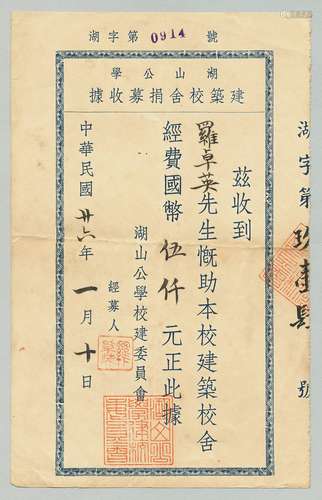 湖字第0914號
湖山公學
建築校舍捐募收據
茲收到
羅卓英先生慨助本校建築校舍
經費國幣伍仟元正此據
湖山公學校建委員會
經募人
中華民國廿六年一月十日
湖字第玖壹肆號